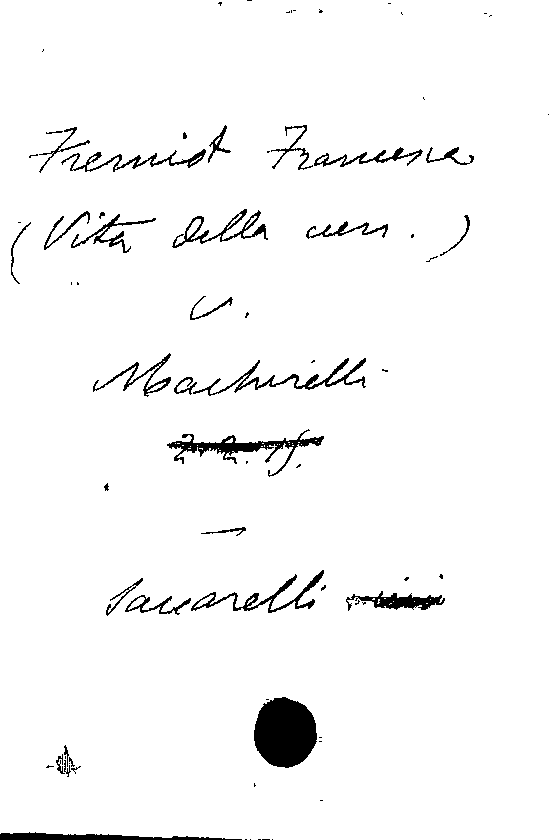 Fremiot Francesca
(Vita della ven.)
V.
Machirelli
2. 2. 15.
—
Saccarelli